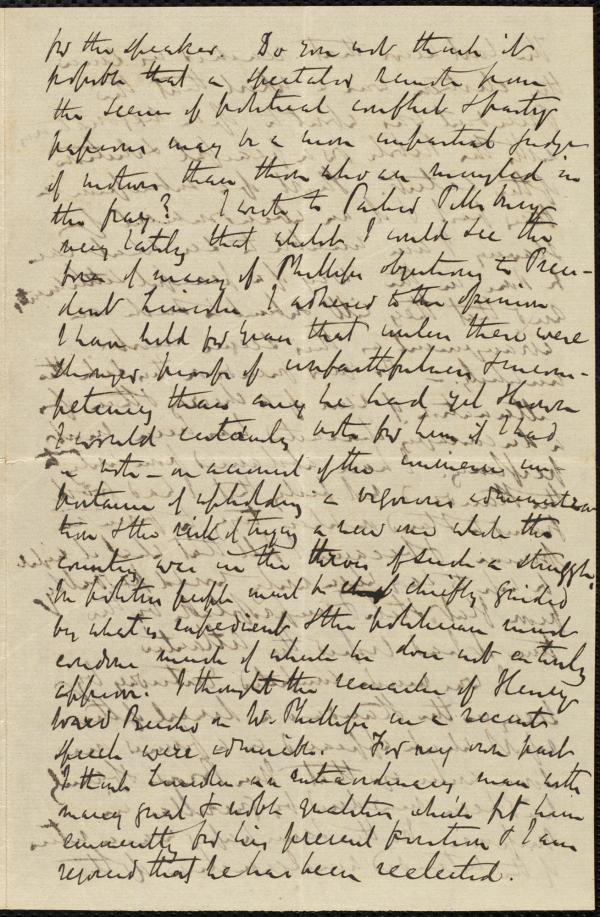 for the speaker. Do you not think it
possible that a spectator remote from
the scene of political conflict & party
passions may be a more impartial judge
of motives than those who are mingled in
the fray? I wrote to Parker Pillsbury
very lately that whilst I could see the
force of many of Phillips objections to Presi-
dent Lincoln I adhered to the opinion
I have held for years that unless there were
stronger proofs of unfaithfulness & incom-
petency than any he had yet shown
I would certainly vote for him if I had
a vote – on account of the immense im-
portance of upholding a vigorous administra-
tion & the risk of trying a new one while the
country was in the throes of such a struggle.
In politics people must be chiefly guided
by what is expedient & the politician must
condone much of which he does not entirely
approve. I thought the remarks of Henry
Ward Beecher on W. Phillips in a recent
speech were admirable. For my own part
I think Lincoln an extraordinary man with
many great & noble qualities which fit him
eminently for his present position & I am
rejoiced that he has been reelected.